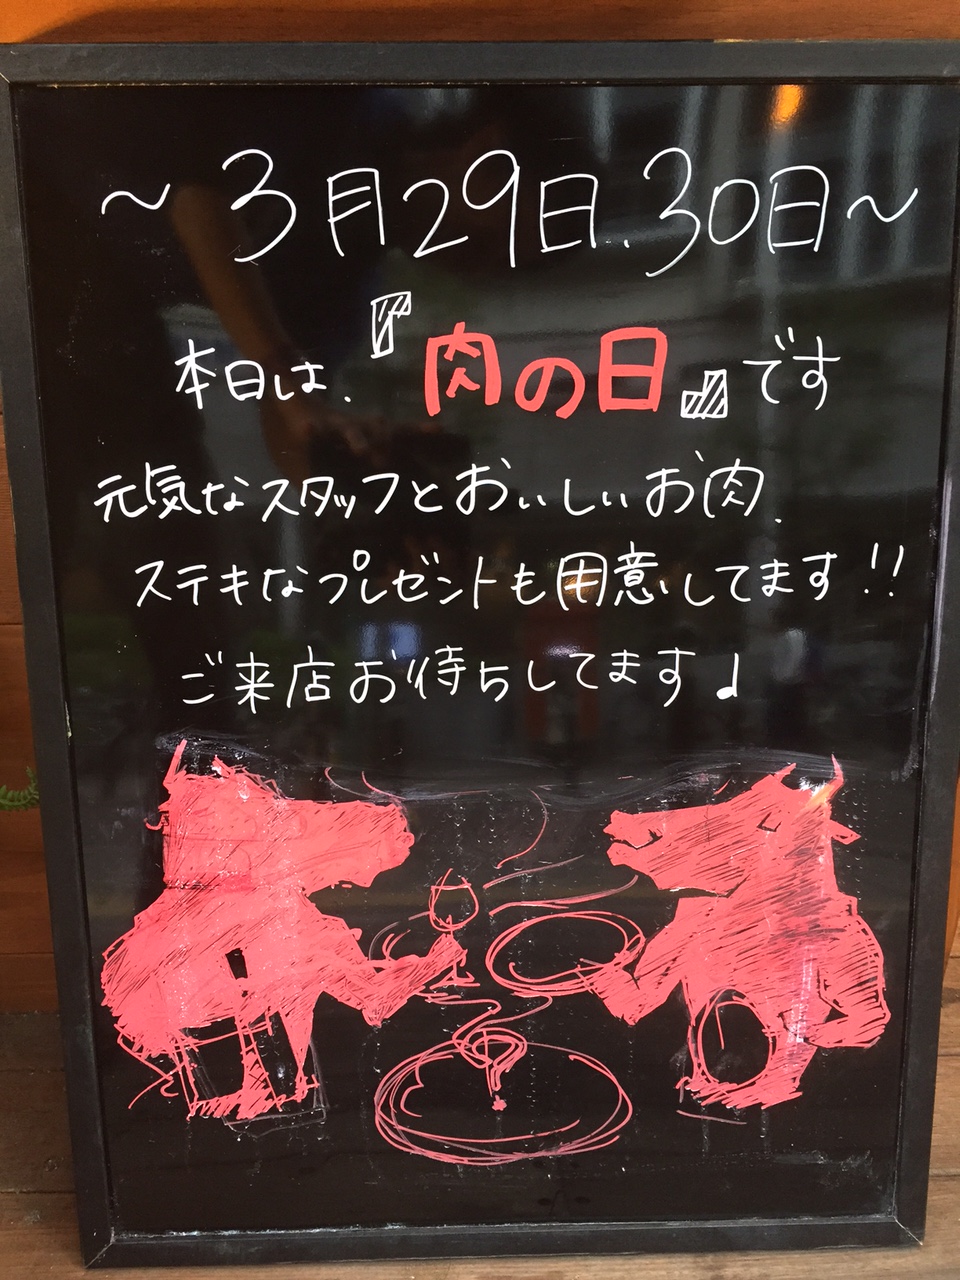 ~3月29日.30日~
本日は.『肉の日』です
元気なスタッフとおいしいお肉.
ステキなプレゼントも用意してます!!
ご来店お待ちしてます♩